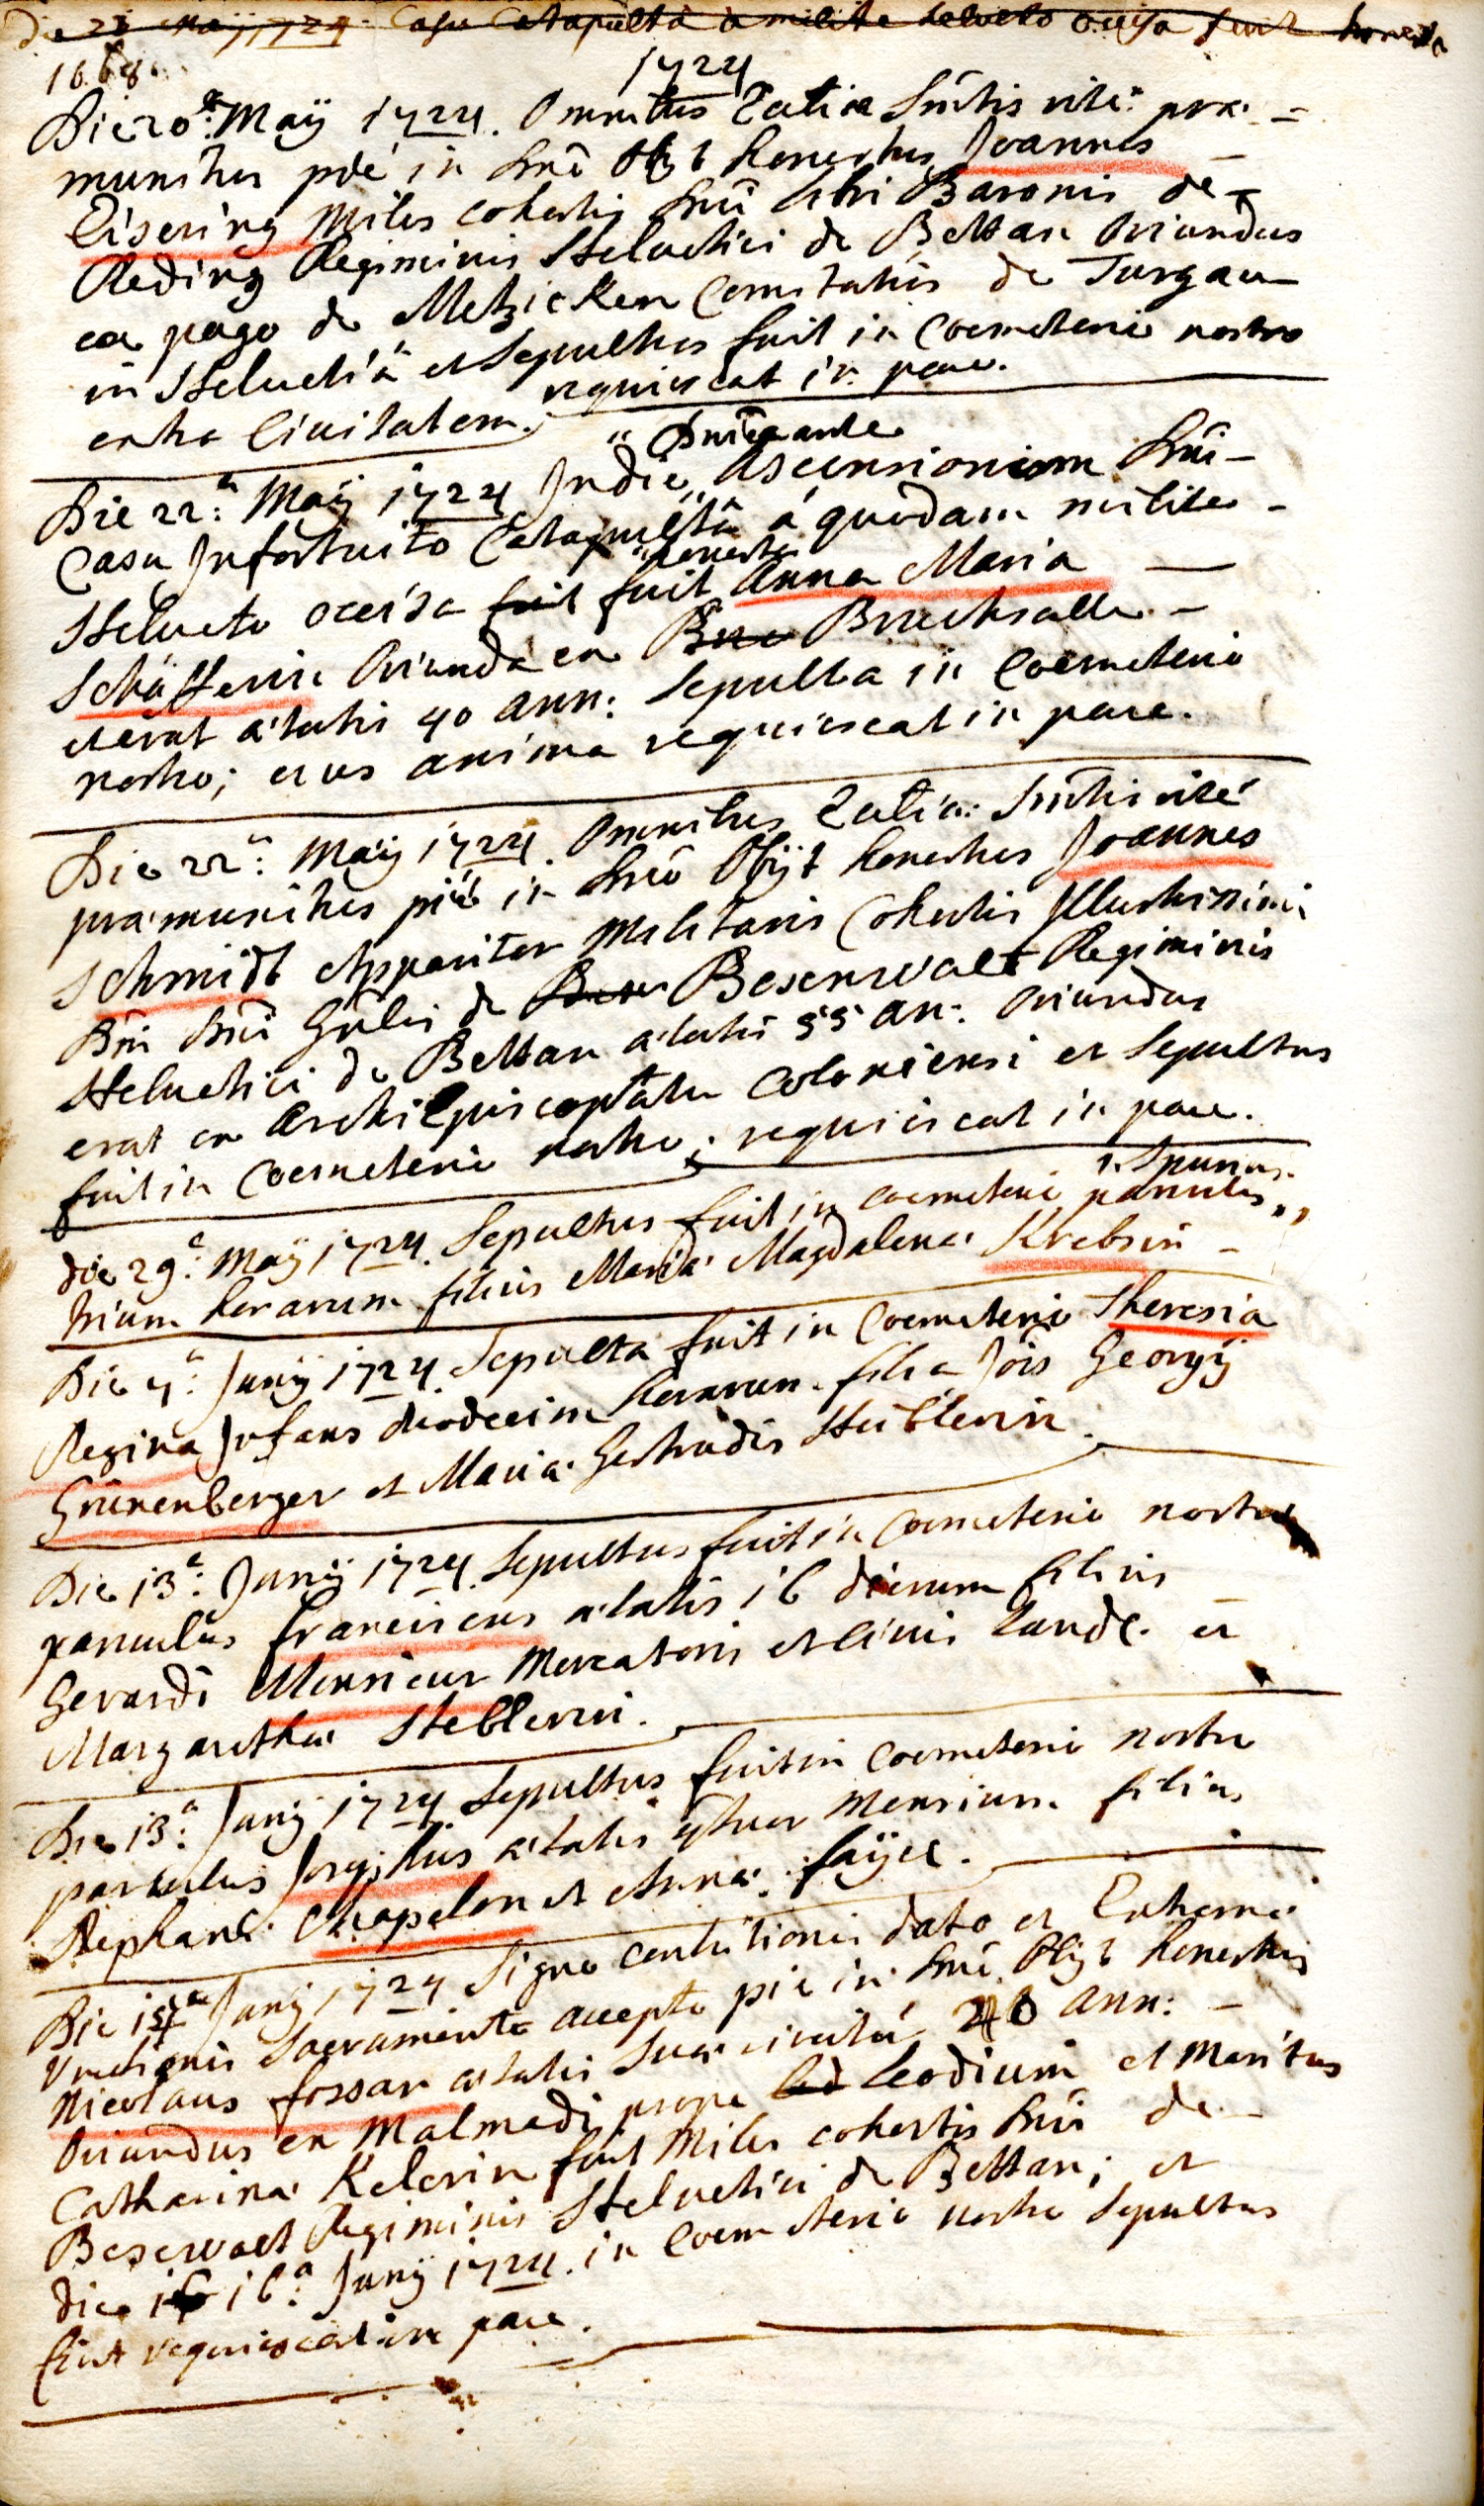 die 22 Maÿ 1724 Casu Catapulta à milite helveto occisa fuit honesta
1724
Die 20.ª Maÿ 1724. Omnibus Eccliæ Smtis rite præ-
munitus pié in Dnõ Obÿt honestus Joannes
Eisering Miles cohortis Dnĩ libri Baronis de
Reding Regiminis Helvetici de Bettan Oriundus
ex pago de Metzicken Comitatûs de Turgau
in Helvetiâ et Sepultus fuit in Coemeterio nostro
extra Civitatem. requiescat in pace.
Die 22.ª Maÿ 1724 In die Dnica ante Ascensionem Dnĩ
Casu Infortuito Catapultâ á quodam milite
Helveto occisa fuit fuit honesta Anna Maria
Schäfferin Oriunda ex Bru Bruchsalle
et erat ætatis 40 ann: Sepulta in Coemeterio
nostro; eius anima requiescat in pace.
Die 22.ª Maÿ 1724. Omnibus Eccliæ Smtis rité
præmunitus pié in Dnõ Obÿt honestus Joannes
Schmidt Apparitor Militaris Cohortis Illustrissimi
Dni Dnĩ Grãlis de Besenwalt Regiminis
Helvetici de Bettan ætatis 55 an: Oriundus
erat ex ArchiEpiscopatu Coloniensi et Sepultus
fuit in Coemeterio nostro; requiescat in pace.
die 29.ª Maÿ 1724. Sepultus fuit in coemeterio parvulus Spurius
trium horarum filius Mariæ Magdalenæ Krebsin
Die 4.ª Junÿ 1724. Sepulta fuit in Coemeterio Theresia
Regina Infans duodecim horarum filia Jõis Georgÿ
Grünenberger et Mariæ Gertrudis Hüblerin.
Die 13.ª Junÿ 1724. Sepultus fuit in Coemeterio nostro
parvulus Franciscus ætatis 16 dierum filius
Gerardi Mensieur Mercatoris et Civis Land. et
Margarethæ Steblerin.
Die 13.ª Junÿ 1724. Sepultus fuit in Coemeterio nostro
parvulus Josephus ætatis qtuor Mensium filius
Stephani Chapelon et Annæ faÿee.
Die 15.ª Junÿ 1724 Signo contritionis dato et Extremæ
Unctionis Sacramento accepto pié in Dnõ Obÿt honestus
Nicolaus fossar ætatis suæ ann:
Oriundus ex Malmedi prope Leodium et Maritus
Catharinæ Kelerin fuit Miles cohortis Dnĩ de
Besewalt Regiminis Helvetici de Bettan; et
die 16.ª Junÿ 1724. in Coemeterio nostro Sepultus
fuit requiescat in pace.